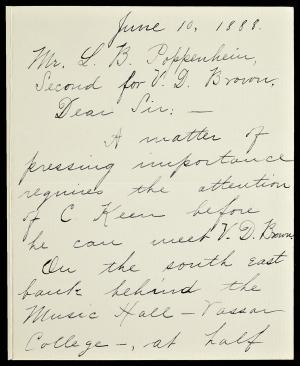 June 10, 1888.
Mr. L. B. Poppenheim,
Second for V. D. Brown.
Dear Sir: —
A matter of
pressing importance
requires the attention
of C. Keen before
he can meet V. D. Brown.
On the south east
bank behind the
Music Hall — Vassar
College —, at half